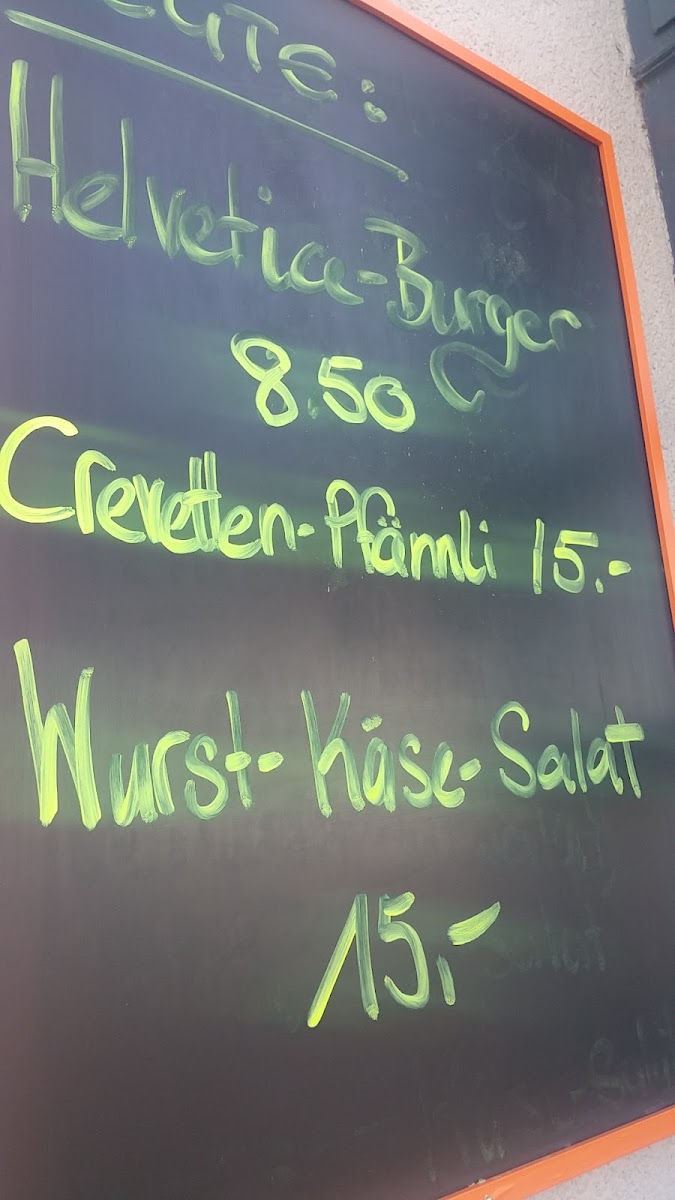 Helvetica-Burger
8.50
Crevetten-Pfännli 15.-
Wurst-Käse-Salat
15.-